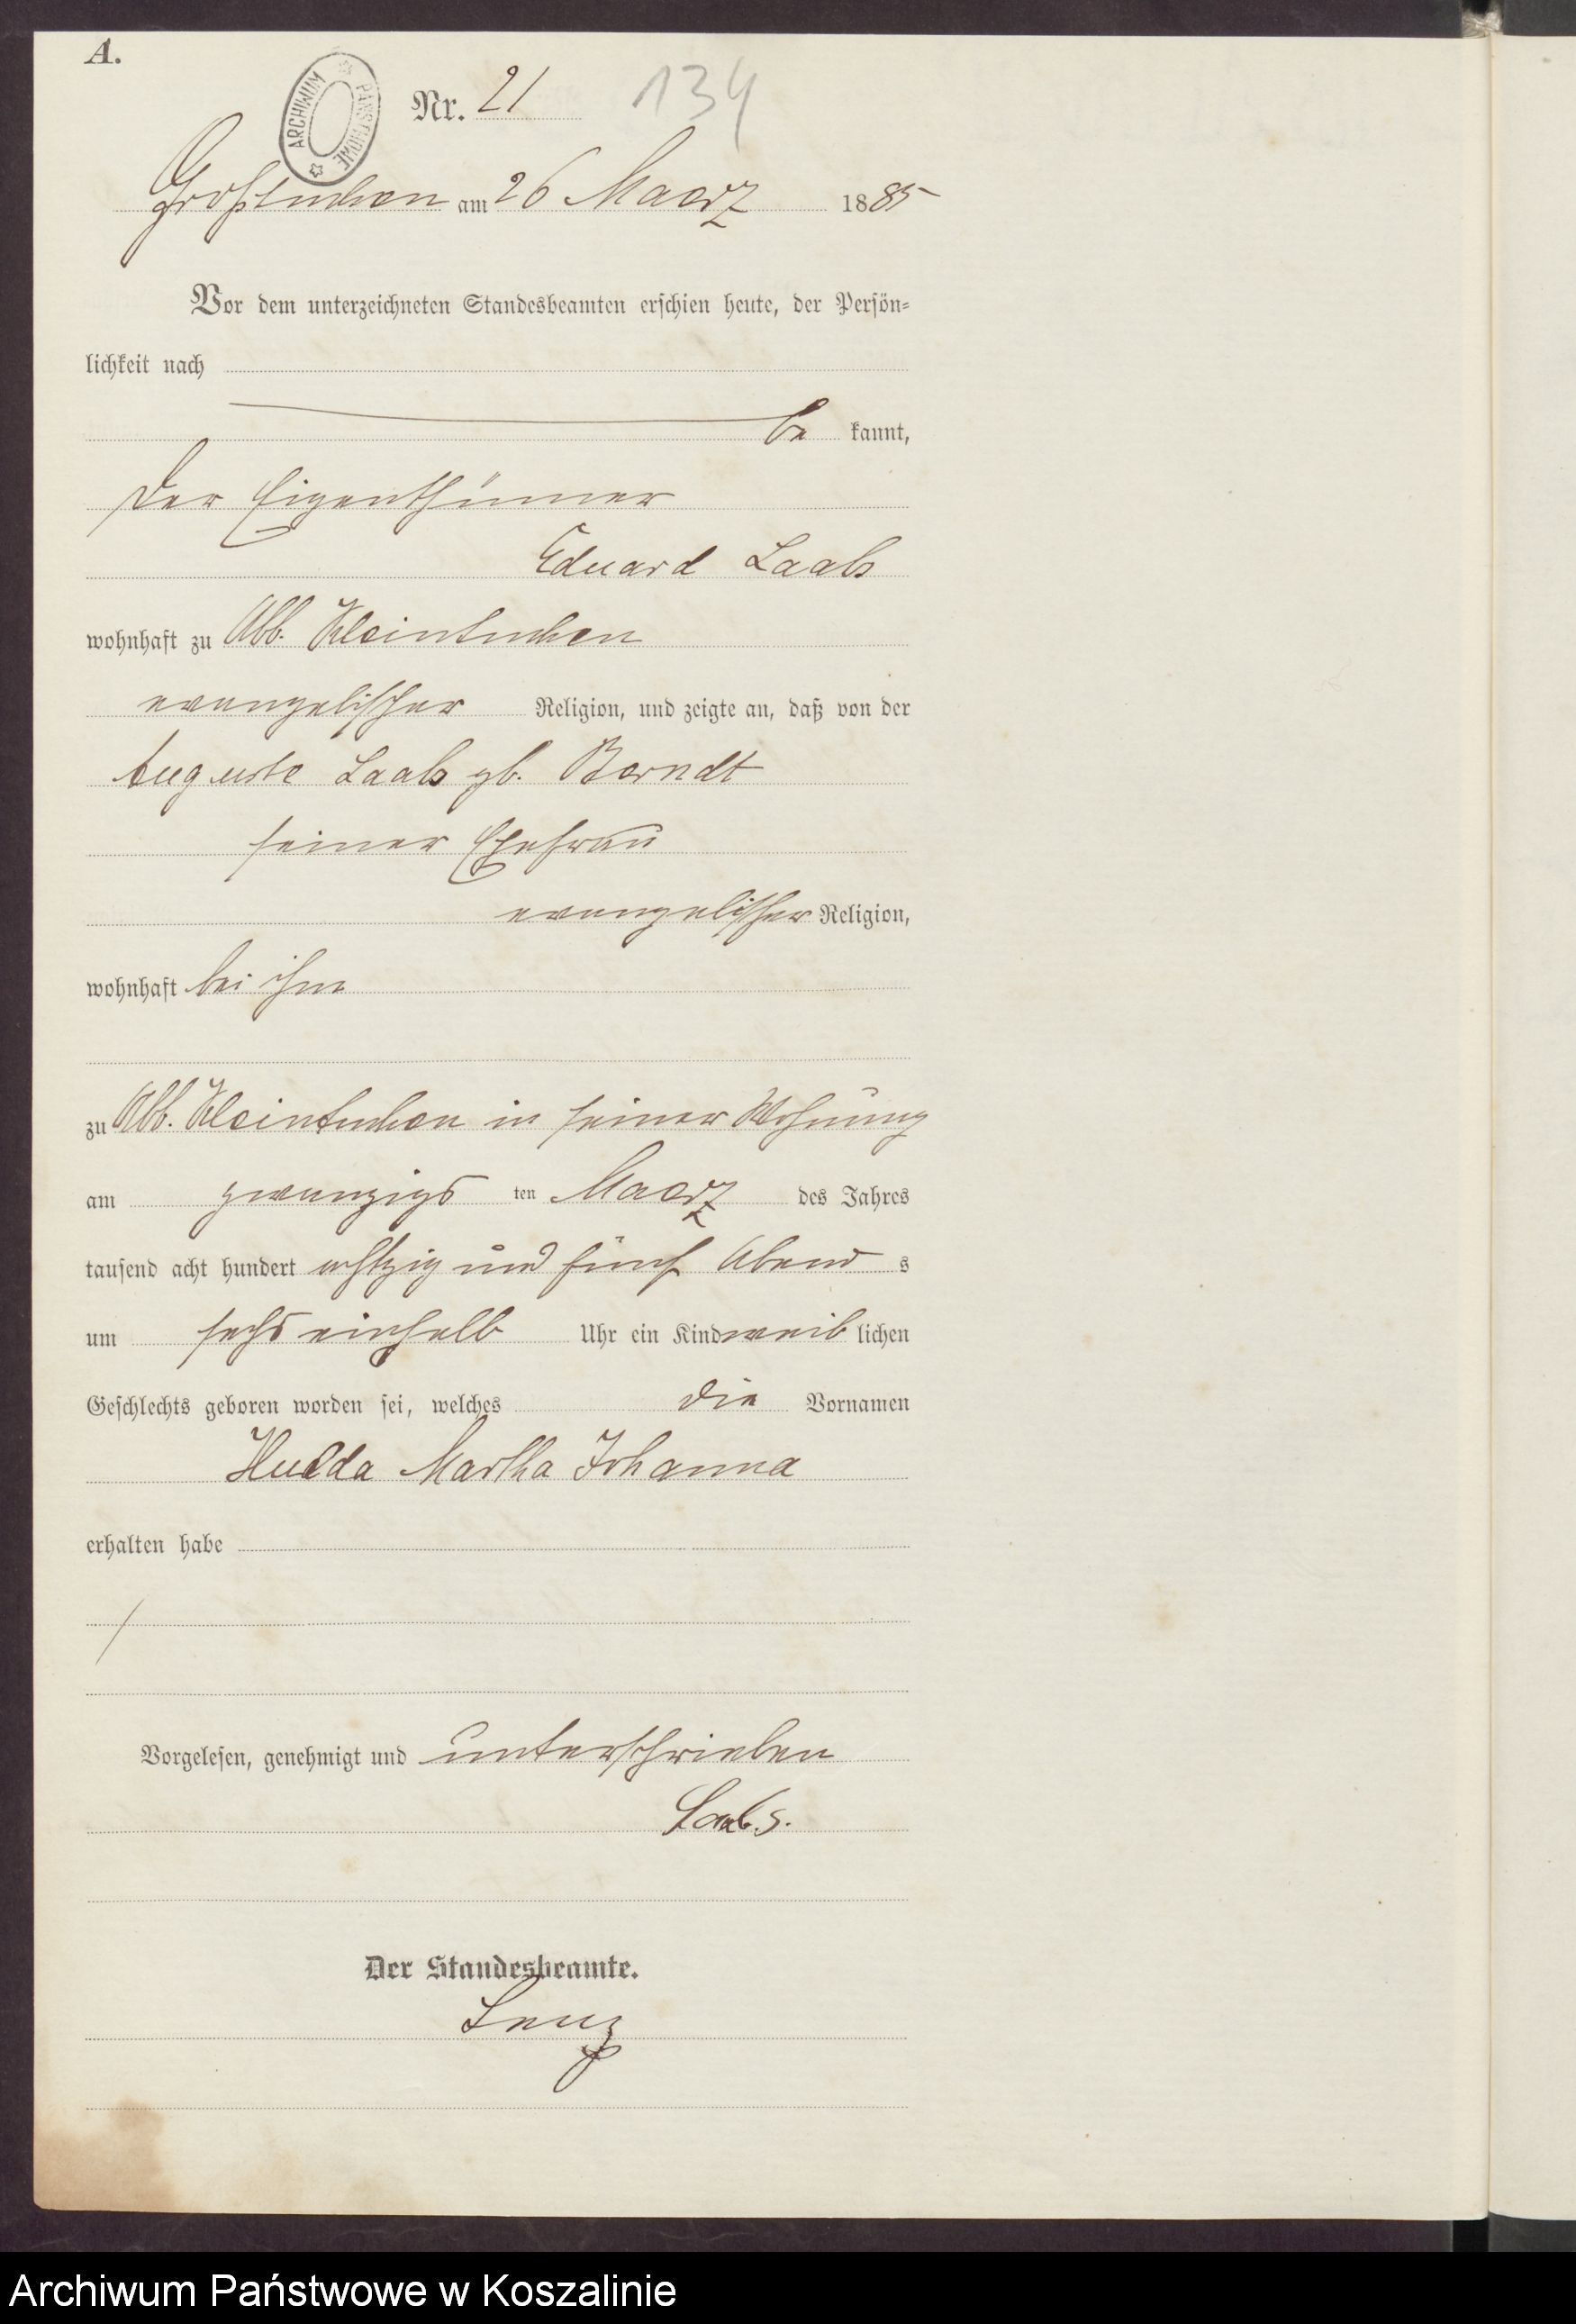 A.
ARCHIWUM PAŃSTWOWE
Nr. 21
134
Großtuchen am 26 Maerz 1885
Vor dem unterzeichneten Standesbeamten erschien heute, der Persön-
lichkeit nach
be kannt,
der Eigenthümer
Eduard Laabs
wohnhaft zu Abb. Kleintuchen
evangelischer Religion, und zeigte an, daß von der
Auguste Laabs gb. Berndt
seiner Ehefrau
evangelischer Religion,
wohnhaft bei ihm
zu Abb. Kleintuchen in seiner Wohnung
am zwanzigs ten Maerz des Jahres
tausend acht hundert achtzig und fünf Abend s
um sechs einhalb Uhr ein Kind weib lichen
Geschlechts geboren worden sei, welches die Vornamen
Hulda Martha Johanna
erhalten habe
Vorgelesen, genehmigt und unterschrieben
Laabs.
Der Standesbeamte.
Lenz
Archiwum Państwowe w Koszalinie